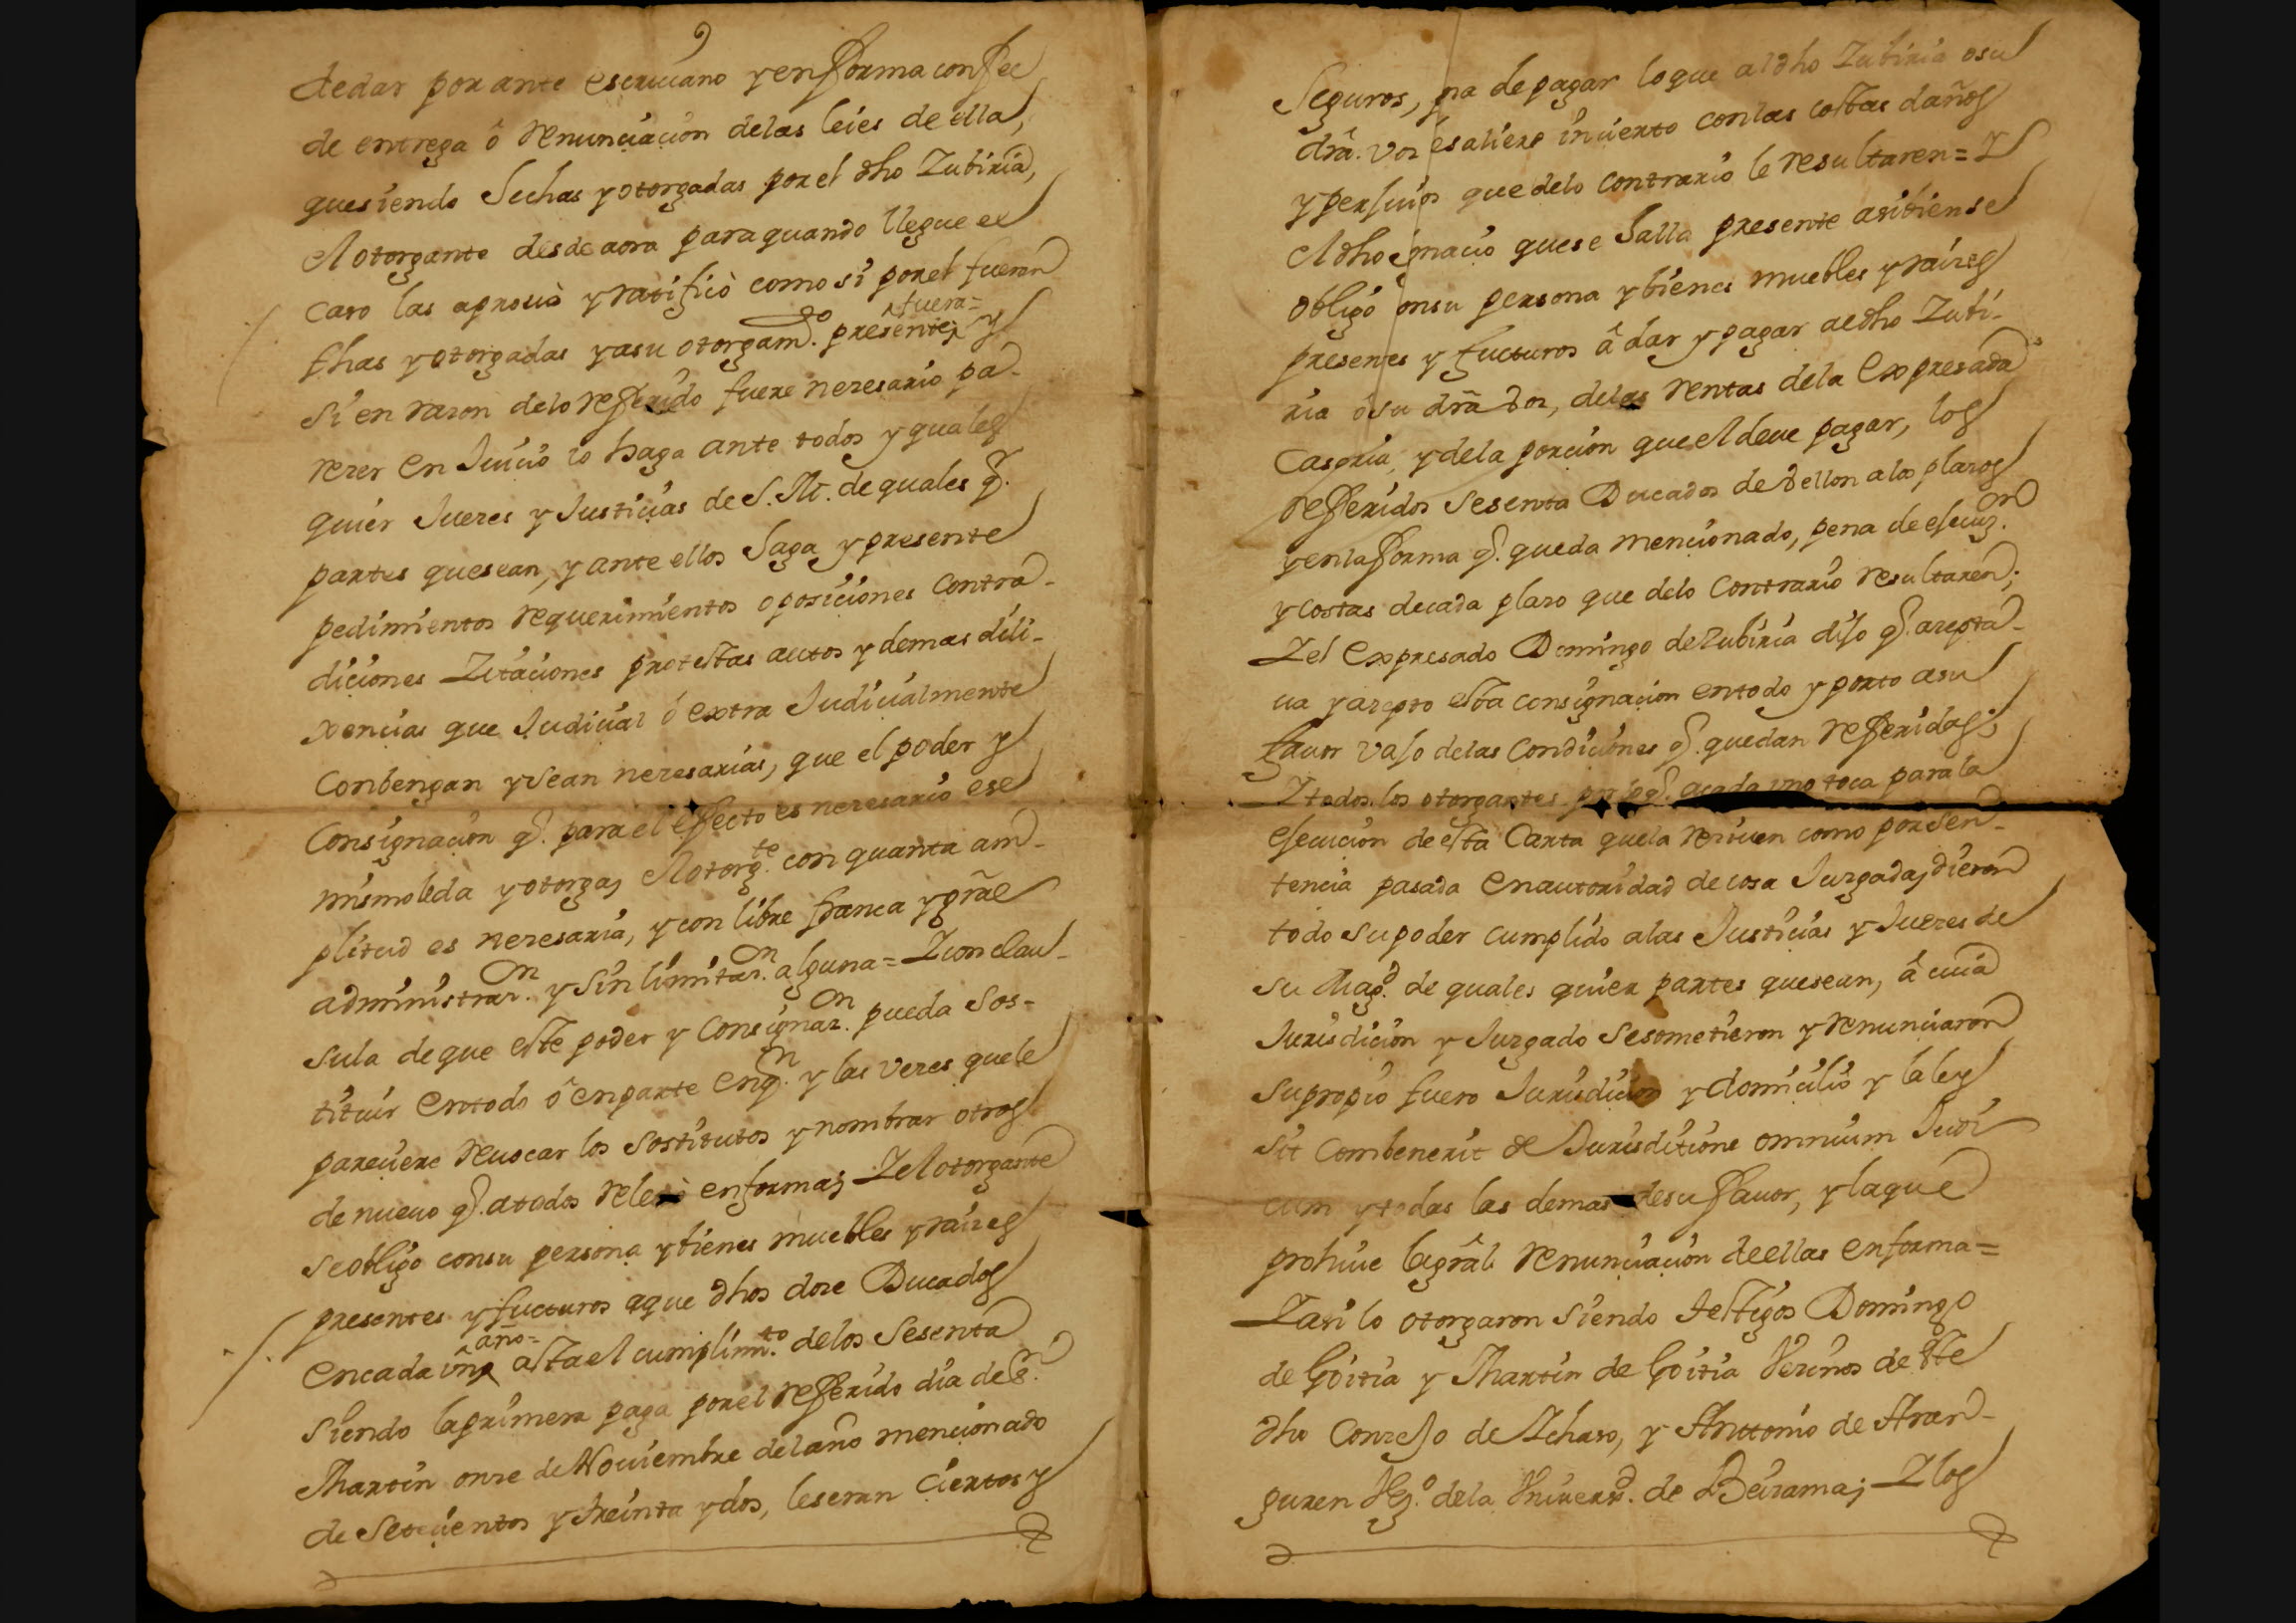 dedar por ante escriuano yenfforma confee
de entrega ô renunciacion delas leies de ella,
quesiendo hechas yotorgadas porel dho Zubiria,
el otorgante desde aora paraquando llegue el
caso las aprouò yratificò como si porel fueran
fhas yotorgadas yasu otorgamto. ^fuera= presente; y
si en razon delo refferido fuere nezesario pa-
rezer en Juicio lo haga ante todos yquales
quier Juezes y Justicias de S. M. de quales q.
partes quesean, y ante ellos haga y presente
pedimientos requerimientos oposiciones contra-
diciones Zitaciones protestas autos y demas dili-
xencias que Judicial ó extra Judicialmente
Conbengan ysean nezesarias, que el poder y
Consignacion q. para el effecto es nezesario ese
mismo leda yotorga, el otorgte. con quanta am-
plitud es nezesaria, ycon libre franca ygrãl
administrazn. y sin limitazn. alguna= Zcon clau-
sula deque este poder y Consignazn. pueda sos-
tituir entodo ô enparte enqn. y las vezes quele
pareciere reuocar los sostitutos y nombrar otros
de nueuo q. atodos releuò enforma; Zel otorgante
seobligo consu persona ybienes muebles yraizes
presentes yfucturos aque dhos doze Ducados
encada vno ^año= asta el cumplimto. delos sesenta
siendo laprimera paga porel refferido dia desn.
Martin onze de Nouiembre delaño mencionado
de setecientos ytreinta ydos, leseran ciertos y
Seguros, pna depagar loque aldho Zubiria osu
drâ. voz esaliere incierto conlas costas daños
yperjuios quedelo contrario le resultaren= Y
el dho ignacio quese halla presente asitiense
obligó onsu persona ybienes muebles yraizes
presenes y fucturos â dar y pagar aldho Zubi-
ria ôsu drâ voz, delas rentas dela Expresada
Caseria, ydela porcion queel deue pagar, los
refferidos sesenta Ducados de vellon alos plazos
yenlafforma q. queda mencionado, pena de esecuzn.
ycostas decada plazo que delo Contrario resultaren;
Zel Expresado Domingo deZubiria dijo q. azepta-
ua yazepto esta consignacion entodo yporto asu
fauor vajo delas Condiciones q. quedan refferidas;
Ztodos los otorgantes por loq. acada vno toca parala
esecucion de esta Carta quela reciuen como porsen-
tencia pasada enautoridad de cosa Juzgada, dieron
todo supoder cumplido alas Justicias y Juezes de
su Magd. de quales quier partes quesean, â cuia
Jurisdicion y Juzgado sesometieron y renunciaron
supropio fuero Jurisdicion ydomicilio y la ley
sit combenerit de Jurisditione omnium Judi
cum ytodas las demas desu ffauor, ylaque
prohiue lagrâl renunciacion deellas enforma=
Zasi lo otorgaron siendo testigos Domingo
de Goitia y Martin de Goitia Vezinos de este
dho Conzejo de Ichaso, y Anttonio de Aran-
guren Vzo. dela Vniversd. de Beizama; Z los